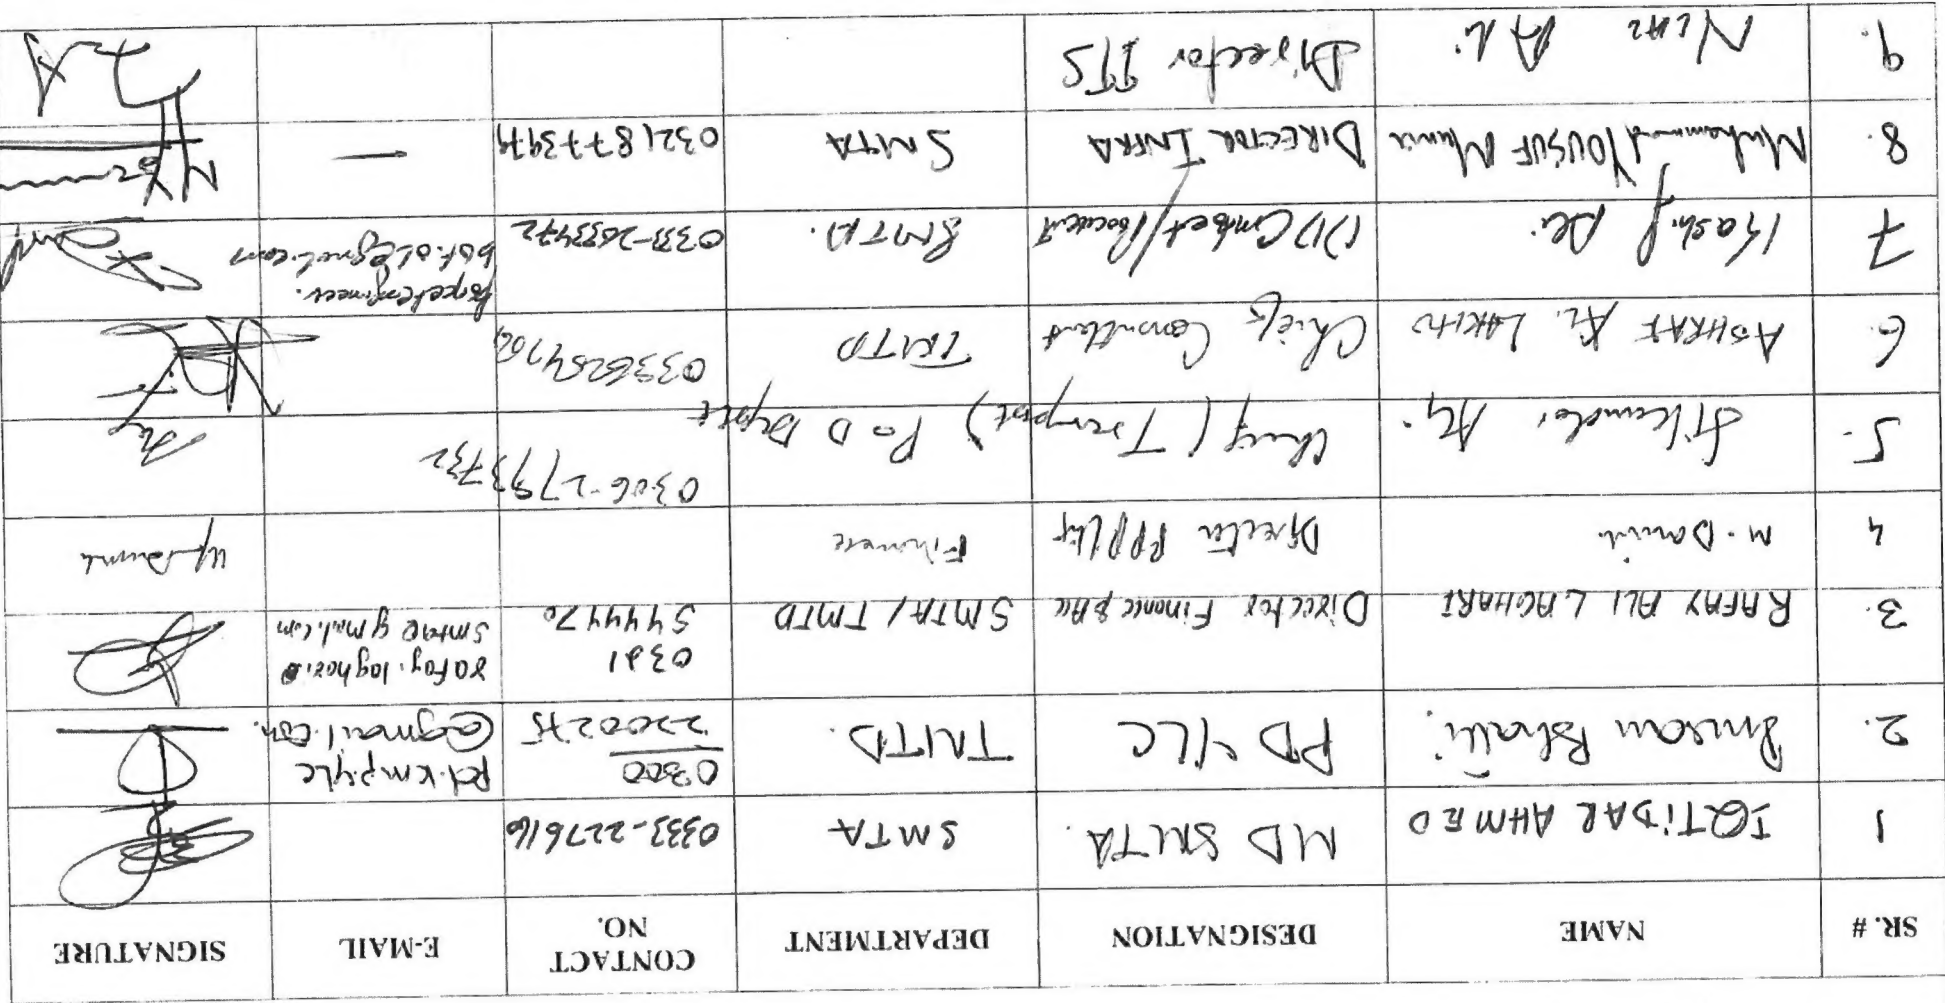 SR. # NAME DESIGNATION DEPARTMENT CONTACT NO. E-MAIL SIGNATURE
1 IQTIDAR AHMED MD SMTA. SMTA 0333-2277616
2. PD YLC TMTD. 0300 2200275 @gmail.com.
3. RAFAY ALI LAGHARI Director Finance & Acc SMTA / TMTD 0321 5444470 rafay.laghari. smta@gmail.com
4 M. Danish Director PPP Unit Finance
5. Ali. Chief (Transport) P&D Deptt 0306-2793732
6. ASHRAF Ali Chief Consultant TMTD
7 Kashif Ali DD Contract/Procument SMTA. 0333-2633472
8. Muhammad YOUSUF Munir DIRECTOR INFRA SMTA 03218773979 —
9. Niaz Ali Director ITS